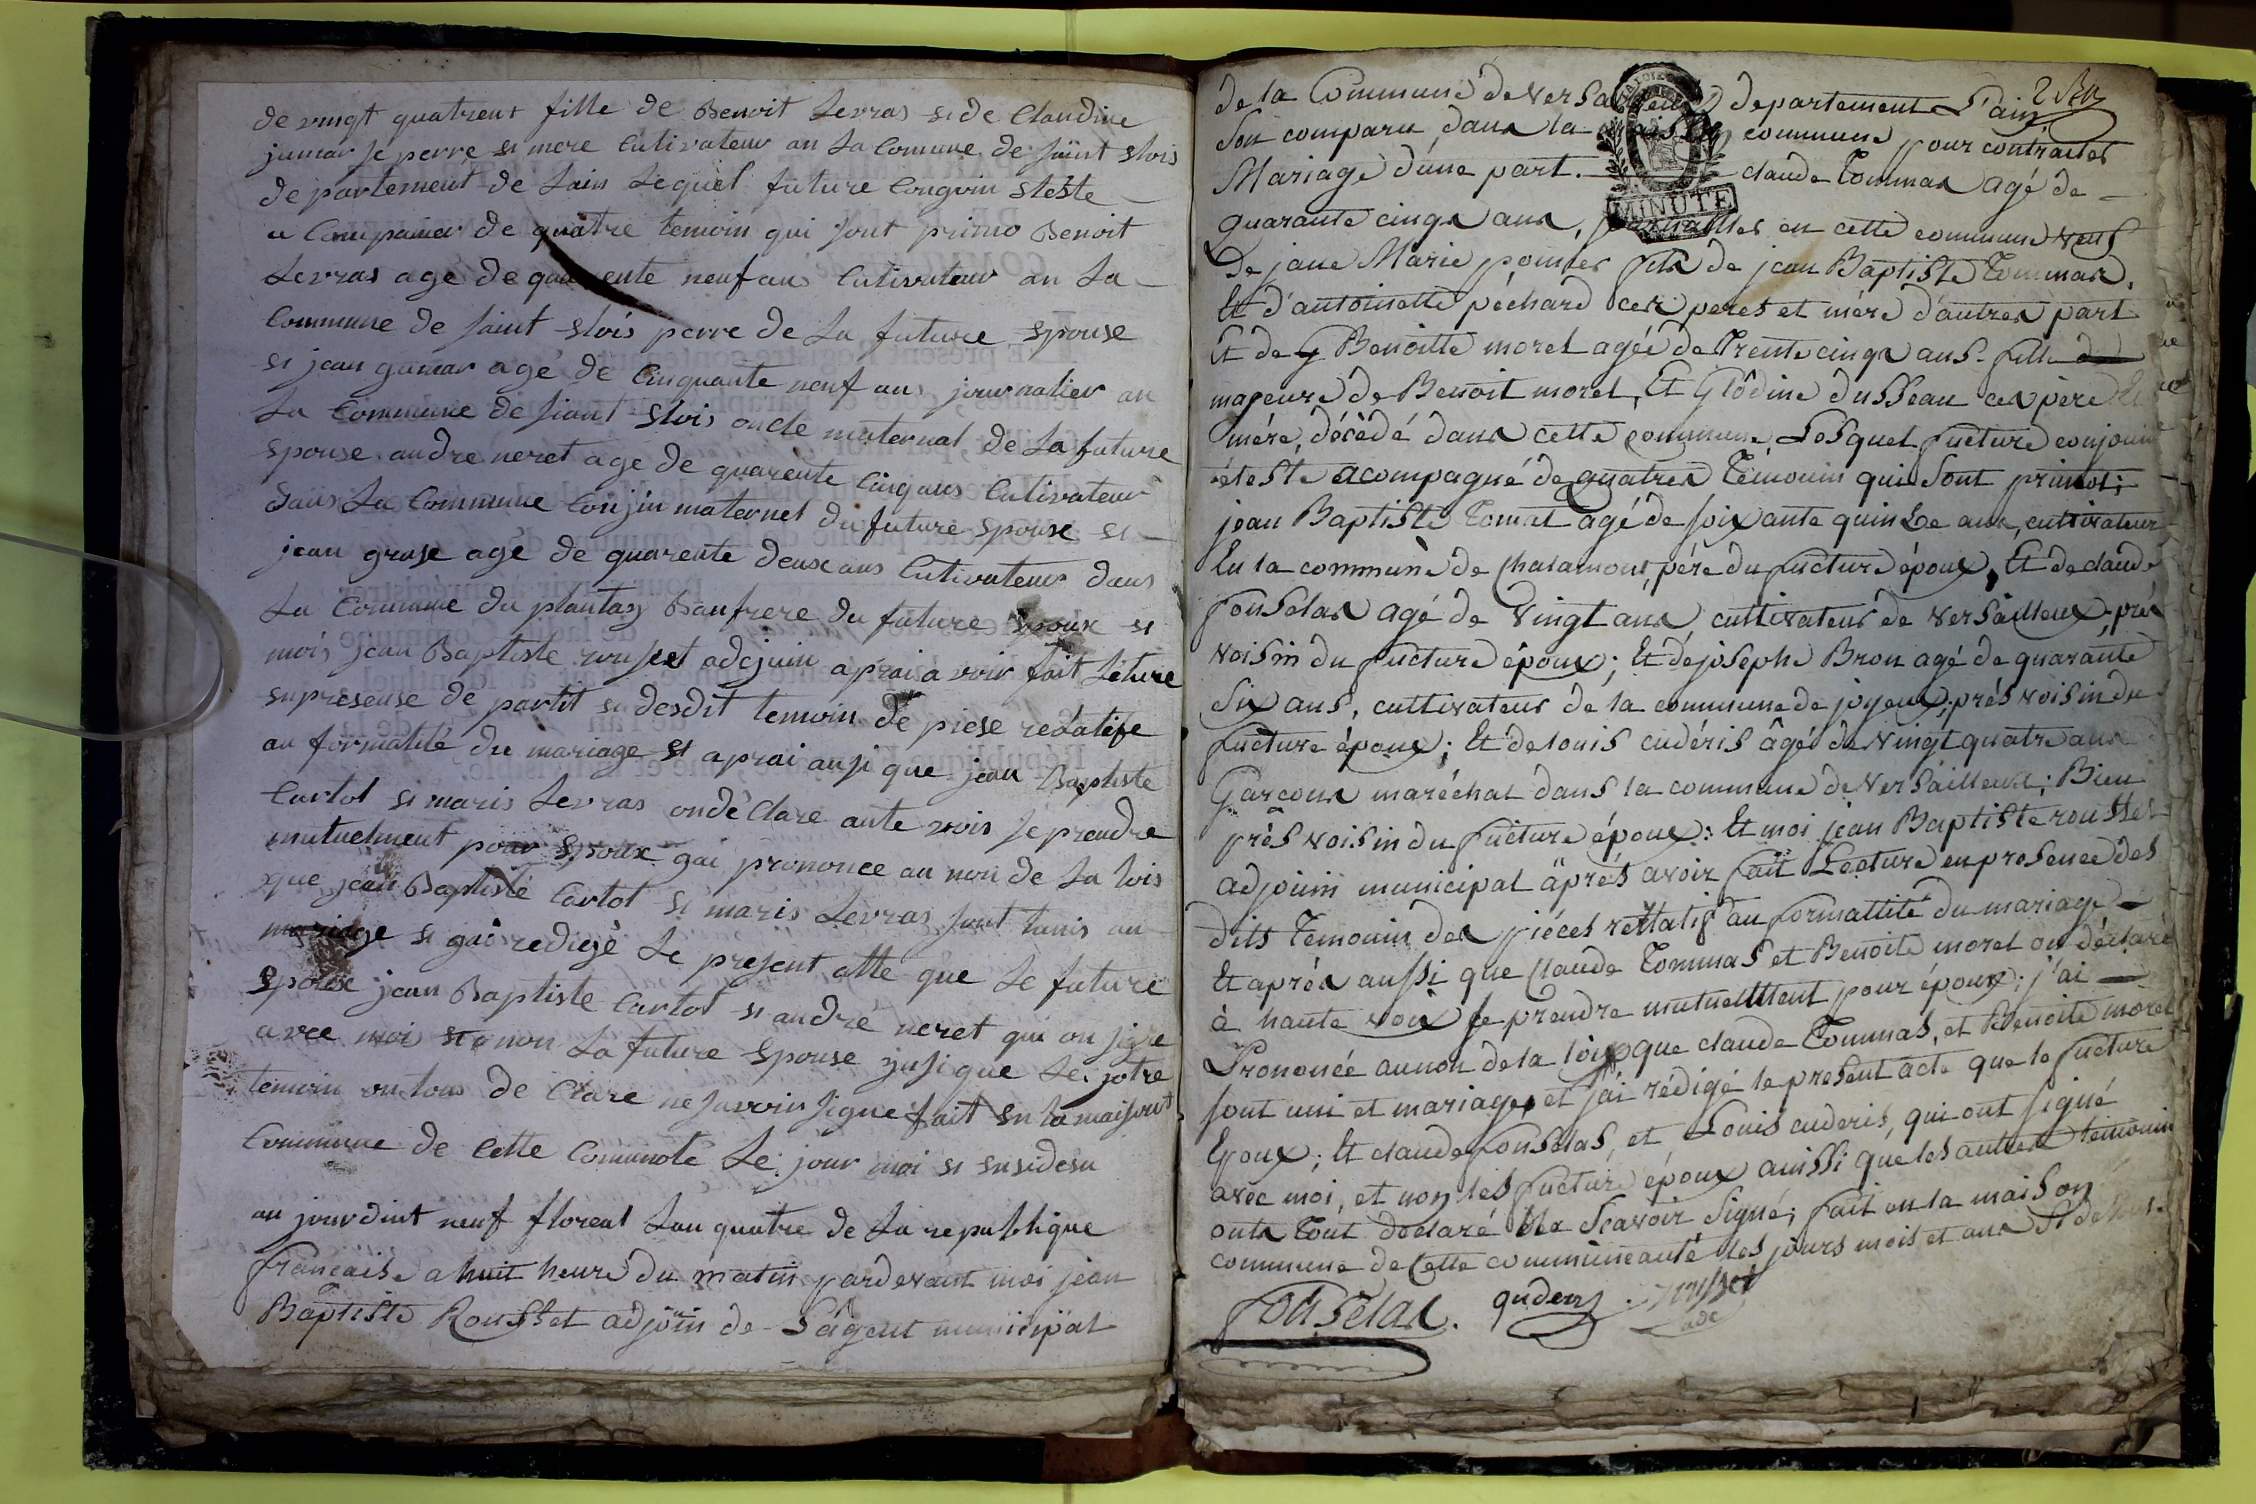 de vingt quatrent fille de Benoit Levras si de Claudine
jumar se perre si mere Cutivateur an la Comune de saint slois
de partement de Lain Lequel future Congoin steste
a Compainier de quatre temoin qui sont primo Benoit
Levras age de quarente neuf ans Cutivateur an La
Commune de saint slois perre de La future spouse
si jean gumar agé de Cinquante neuf ans journatier an
La Commune de siant slois oncle maternal de La future
spouse andre neret age de quarente Cinq ans Cutivateur
dans La Commune Conjin maternel du future spoux si
jean grose age de quarente deux ans Cutivateur dans
La Commune du plantay Baufrere du future spoux si
moi jean Baptiste rouset adejuin aprai avoir fait Leture
supreseuse de partit si desdit temoin de piese redatife
au formatité du mariage si aprai ausi que jean Baptiste
Cartot si maris Levras on déClare aute vois se prendre
mutuelment pour spoux gai prononce au non de La lois
que jean Baptiste Cartot si maris Levras sont hunis an
mariage si gai redigé Le present atte que Le future
spoux jean Baptiste Cartot si andré neret qui on signe
avec moi si non La future spouse insi que Les
temoin on tous de Clare ne savoir signe fait en la maison
Commune de Cette Comunote Le jour moi si ensidesu
au jourdint neuf floreal Lan quatre de La republique
français a huit heure du matin pardevant moi jean
Baptiste Rousset adjoin de L'agent municipal
de la Commune de versailleux departement L'ain
Son comparu dans la commune pour contracter
Mariage d'une part. claude Tommas agé de
quarante cinqs ans, en cette commune veuf
De jane Marie pointes fils de jean Baptiste Tommas,
Et d'antoinette péchard ces peres et mére d'autres part
Et de Benoitte morel agée de Trente cinqs ans. fille
majeure de Benoit morel, Et Glôdine dusseau ces père Et
mére, décèdé dans cette commune Losquel fucture conjouin
éteste acompagné de quatres Témouin qui sont primot;
jean Baptiste Tomat agé de soixante quinze ans, cultivateur
En la commune de Chalamont, pére du fucture époux, Et de claude
fonsélas agé de vingt ans, cultivateur de versailleux, prés
voisin du fucture époux; Et de joseph Bron agé de quarante
Six ans, cultivateur de la commune de joyeux, prés voisin du
fucture époux; Et de louis cudéris âgé de vingt quatre ans
Garçons maréchal dans la commune de versailleux; Bien
près voisin du fucture époux: Et moi jean Baptiste rousset
adjouin municipal aprés avoir fait Lecture en presence des
dits Témouin des piéces rettatif au formattité du mariage
Et aprés aussi que Claude Tommas et Benoite morel on déclaré
à haute voix se prendre mutuellment pour époux; j'ai
Prononcée au non de la loix que claude Tommas, et Benoite morel
sont uni et mariage, et j'ai rédigé le present acte que le fucture
Epoux; Et claude fonselas, et Louis cuderis, qui ont signé
avec moi, et non les fucture époux ainssi que les autres temouin
onts tout déclaré Ne Scavoir signé; fait en la maison
commune de Cette communeauté les jours mois et ans
MINUTE
fonsélas. quders rousset
ade